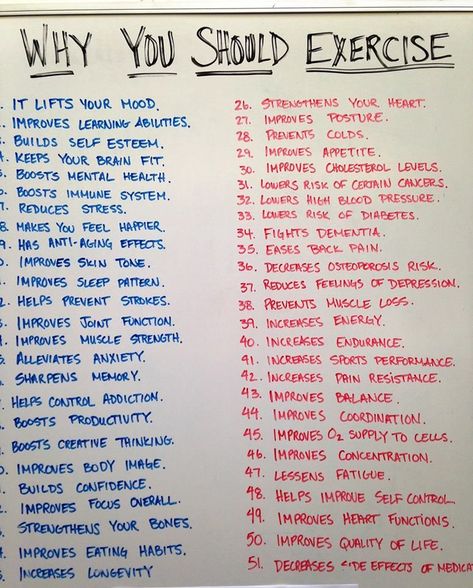 WHY YOU SHOULD EXERCISE
IT LIFTS YOUR MOOD.
IMPROVES LEARNING ABILITIES.
BUILDS SELF ESTEEM.
KEEPS YOUR BRAIN FIT.
BOOSTS MENTAL HEALTH.
BOOSTS IMMUNE SYSTEM.
REDUCES STRESS.
MAKES YOU FEEL HAPPIER.
HAS ANTI-AGING EFFECTS.
IMPROVES SKIN TONE.
IMPROVES SLEEP PATTERN.
HELPS PREVENT STROKES.
IMPROVES JOINT FUNCTION.
IMPROVES MUSCLE STRENGTH.
ALLEVIATES ANXIETY.
SHARPENS MEMORY.
HELPS CONTROL ADDICTION.
BOOSTS PRODUCTIVITY.
BOOSTS CREATIVE THINKING.
IMPROVES BODY IMAGE.
BUILDS CONFIDENCE.
IMPROVES FOCUS OVERALL.
STRENGTHENS YOUR BONES.
IMPROVES EATING HABITS.
INCREASES LONGEVITY
26. STRENGTHENS YOUR HEART.
27. IMPROVES POSTURE.
28. PREVENTS COLDS.
29. IMPROVES APPETITE.
30. IMPROVES CHOLESTEROL LEVELS.
31. LOWERS RISK OF CERTAIN CANCERS.
32. LOWERS HIGH BLOOD PRESSURE.
33. LOWERS RISK OF DIABETES.
34. FIGHTS DEMENTIA.
35. EASES BACK PAIN.
36. DECREASES OSTEOPOROSIS RISK.
37. REDUCES FEELINGS OF DEPRESSION.
38. PREVENTS MUSCLE LOSS.
39. INCREASES ENERGY.
40. INCREASES ENDURANCE.
41. INCREASES SPORTS PERFORMANCE.
42. INCREASES PAIN RESISTANCE.
43. IMPROVES BALANCE.
44. IMPROVES COORDINATION.
45. IMPROVES O2 SUPPLY TO CELLS.
46. IMPROVES CONCENTRATION.
47. LESSENS FATIGUE.
48. HELPS IMPROVE SELF CONTROL.
49. IMPROVES HEART FUNCTIONS.
50. IMPROVES QUALITY OF LIFE.
51. DECREASES SIDE EFFECTS OF